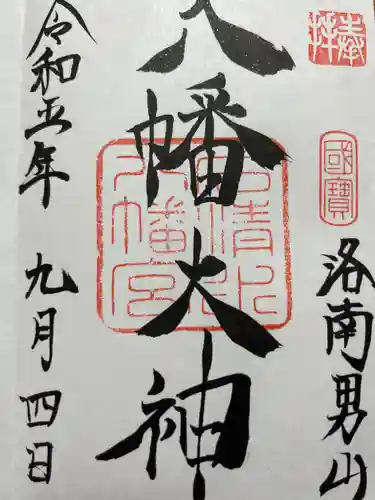 奉拝
國寶
洛南男山
八幡大神
石清水
八幡宮
令和五年
九月四日